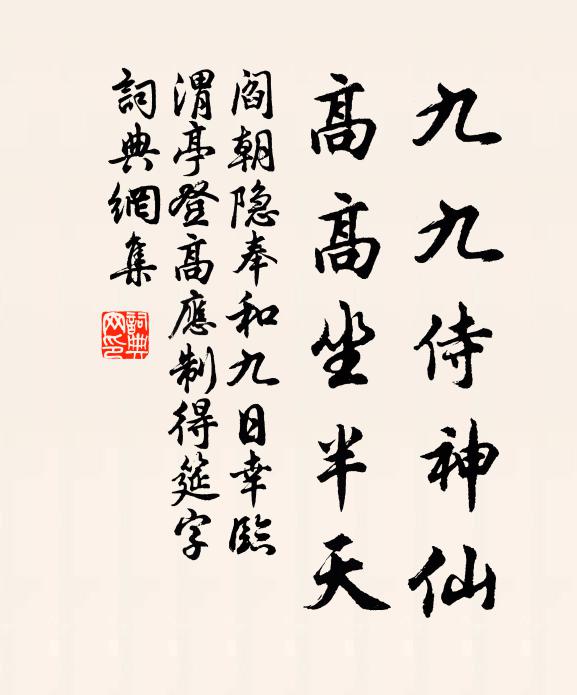 九九侍神仙
高高坐半天
阎朝隐奉和九日幸臨
渭亭登高應制得筵字
詞典網集
詞典
网印